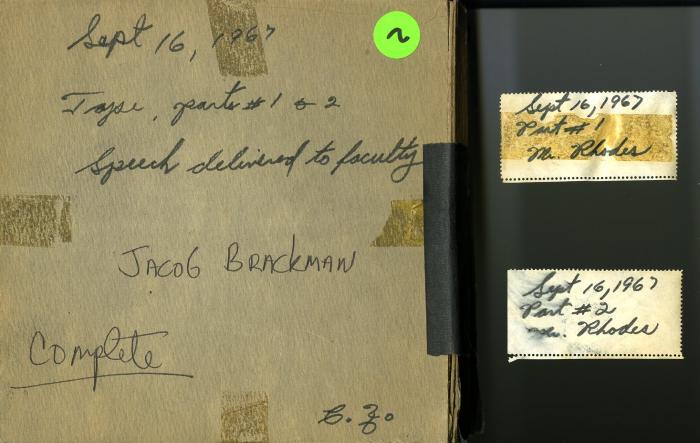 Sept 16, 1967
2
Tape, parts #1 & 2
Speech delivered to faculty
JACOB BRACKMAN
Complete
Sept 16, 1967
Part #1
Mr. Rhodes
Sept 16, 1967
Part #2
Mr. Rhodes